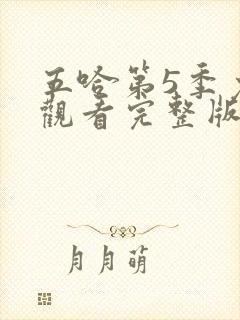 五哈第5季
觀看完整版
月月萌